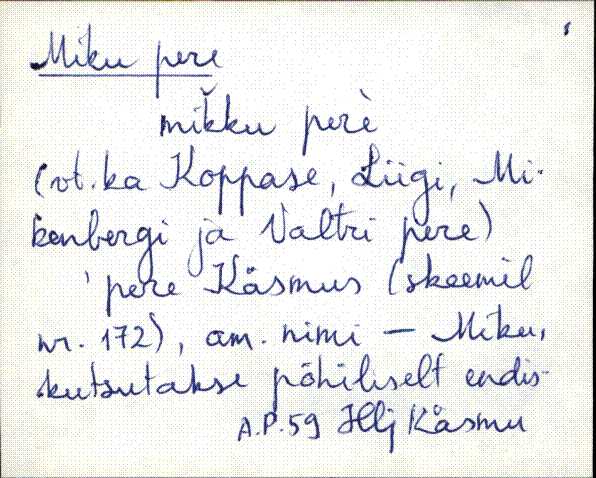 Miku pere
mi̬kku perè
(vt.ka Koppase, Liigi, Mi-
kenbergi ja Valtri pere)
' pere Käsmus (skeemil
nr. 172), am. nimi – Miku,
kutsutakse põhiliselt endis-
A.P.59 Hlj Käsmu